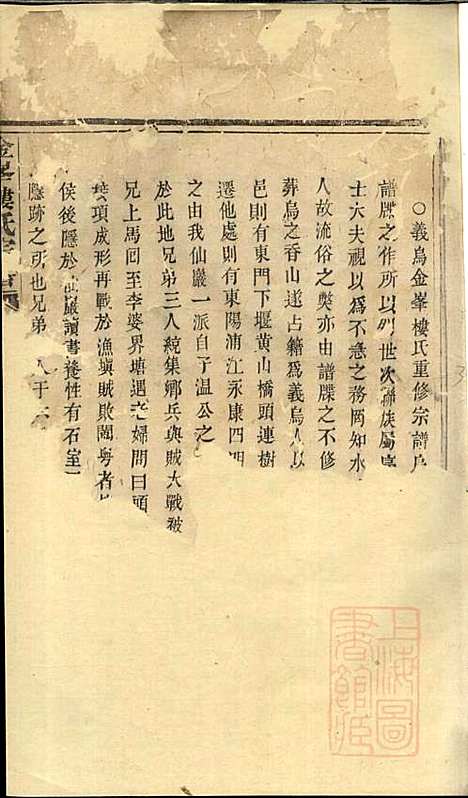 ○義烏金峯樓氏重修宗譜
譜牒之作所以列世次聯族屬
士大夫視以爲不急之務罔知水
人故流俗之獘亦由譜牒之不修
葬烏之香山遂占籍爲義烏人以
邑則有東門下堰黃山橋頭連樹
遷他處則有東陽浦江永康四明
之由我仙巖一派自予溫公之
於此地兄弟三人統集鄉兵與賊大戰被
兄上馬回至李婆界塘遇老婦問曰頭
項成形再戰於漁塡賊敗闘
侯後隱於仙巖讀書養性有石室
隱跡之所也兄弟 人于
樓氏宗
上海圖書館藏